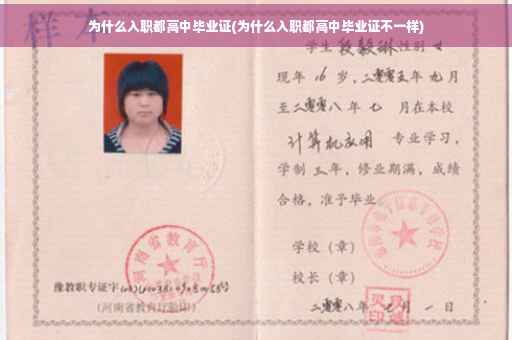 为什么入职都高中毕业证(为什么入职都高中毕业证不一样)
样本
学生段毅琳性别女
现年16岁，二零零五年九月
至二零零八年七月在本校
计算机应用 专业学习，
学制三年，修业期满，成绩
合格，准予毕业
学校（章）
校长（章）
二零零八年七月一日
河南省教育厅
豫教职专证字
(河南省教育厅验印)